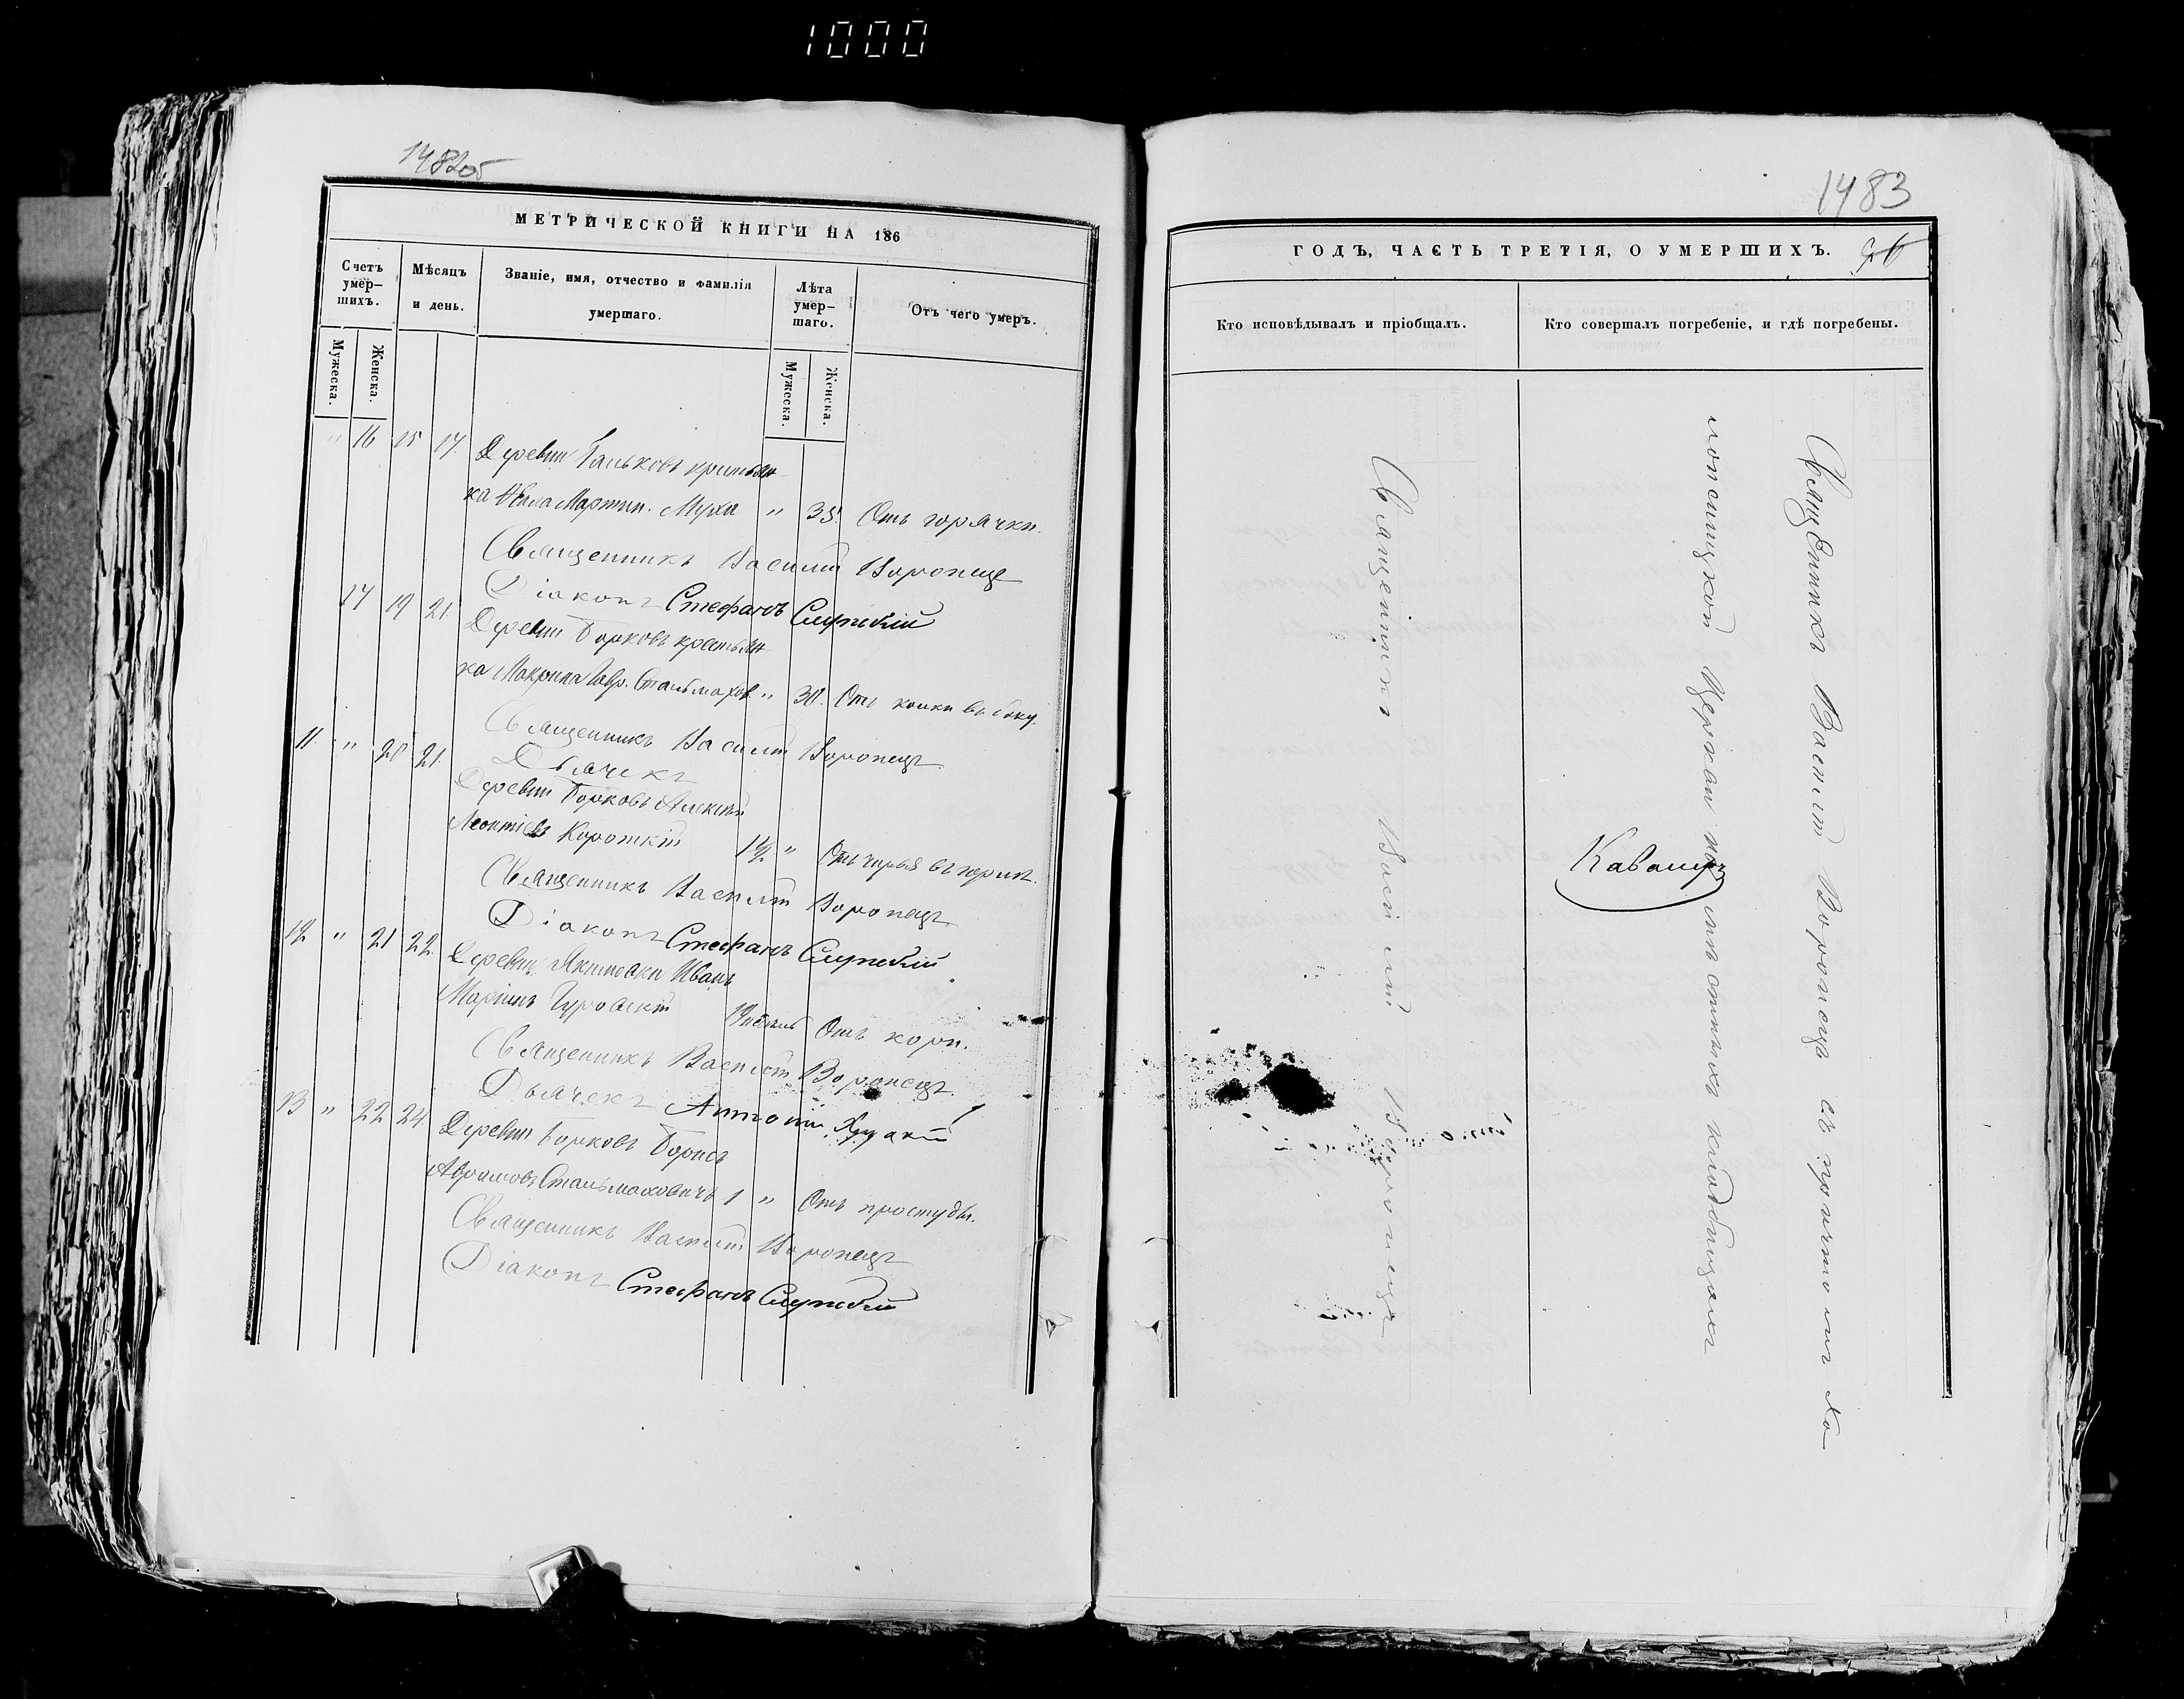 1000
1482об
МЕТРИЧЕСКОЙ КНИГИ НА 186
Счетъ умер-шихъ.
Мѣсяцъ и день.
Званіе, имя, отчество и фамилія умершаго.
Лѣта умер-шаго.
Отъ чего умеръ.
Мужеска.
Женска.
Мужеска.
Женска.
" 16 15 17. Деревни Гальковъ крестьян-
ка Мартин. Муха " 35. Отъ горячки.
Священникъ Василій Воронецъ
Діаконъ Стефанъ Слупскій
17 19 21. Деревни Борковъ крестьян-
ка Макрина Гавр. Стальмахов. " 30. Отъ колки въ боку.
Священникъ Василій Воронецъ
Дьячекъ
11. " 20 21. Деревни Борковъ Алексѣй
Леонтіевъ Короткій 1½ " Отъ
Священникъ Василій Воронецъ
Діаконъ Стефанъ Слупскій
12 " 21 22. Деревни Иванъ
Гуровскій Отъ кори.
Священникъ Василій Воронецъ
Дьячекъ Антоній
13 " 22 24. Деревни Борковъ Борисъ
Абрамовъ Стальмаховичъ 1 " Отъ простуды.
Священникъ Василій Воронецъ
Діаконъ Стефанъ Слупскій
1483
ГОДЪ, ЧАСТЬ ТРЕТІЯ, О УМЕРШИХЪ.
Кто исповѣдывалъ и пріобщалъ.
Кто совершалъ погребеніе, и гдѣ погребены.
Священникъ Василій Воронецъ
Священникъ Василій Воронецъ съ причтомъ Хо-
лопеницкой Церкви на мѣстныхъ кладбищахъ